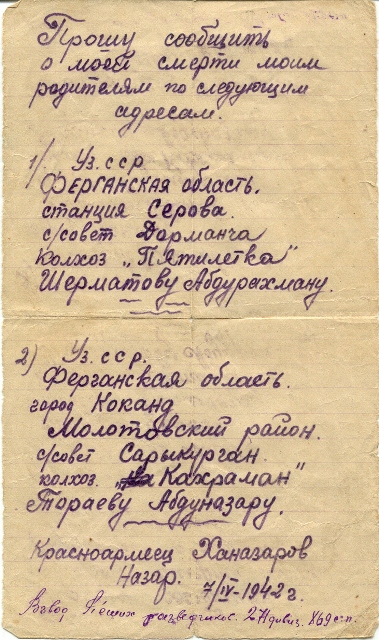 Прошу сообщить
о моей смерти моим
родителям по следующим
адресам.
1/. Уз. сср
ФЕРГАНСКАЯ область.
станция Серова.
с/совет Дорманча
Колхоз „Пятилетка"
Шерматову Абдурахману.
2) Уз. с с р.
Ферганская область.
город Коканд
Молотовский район.
с/совет Сарыкурган.
колхоз. „Кахраман"
Тораеву Абдуназару.
Красноармеец Ханазаров
Назар. 7/IV-1942 г.
Взвод Пеших разведчиков. дивиз. 869 с.п.